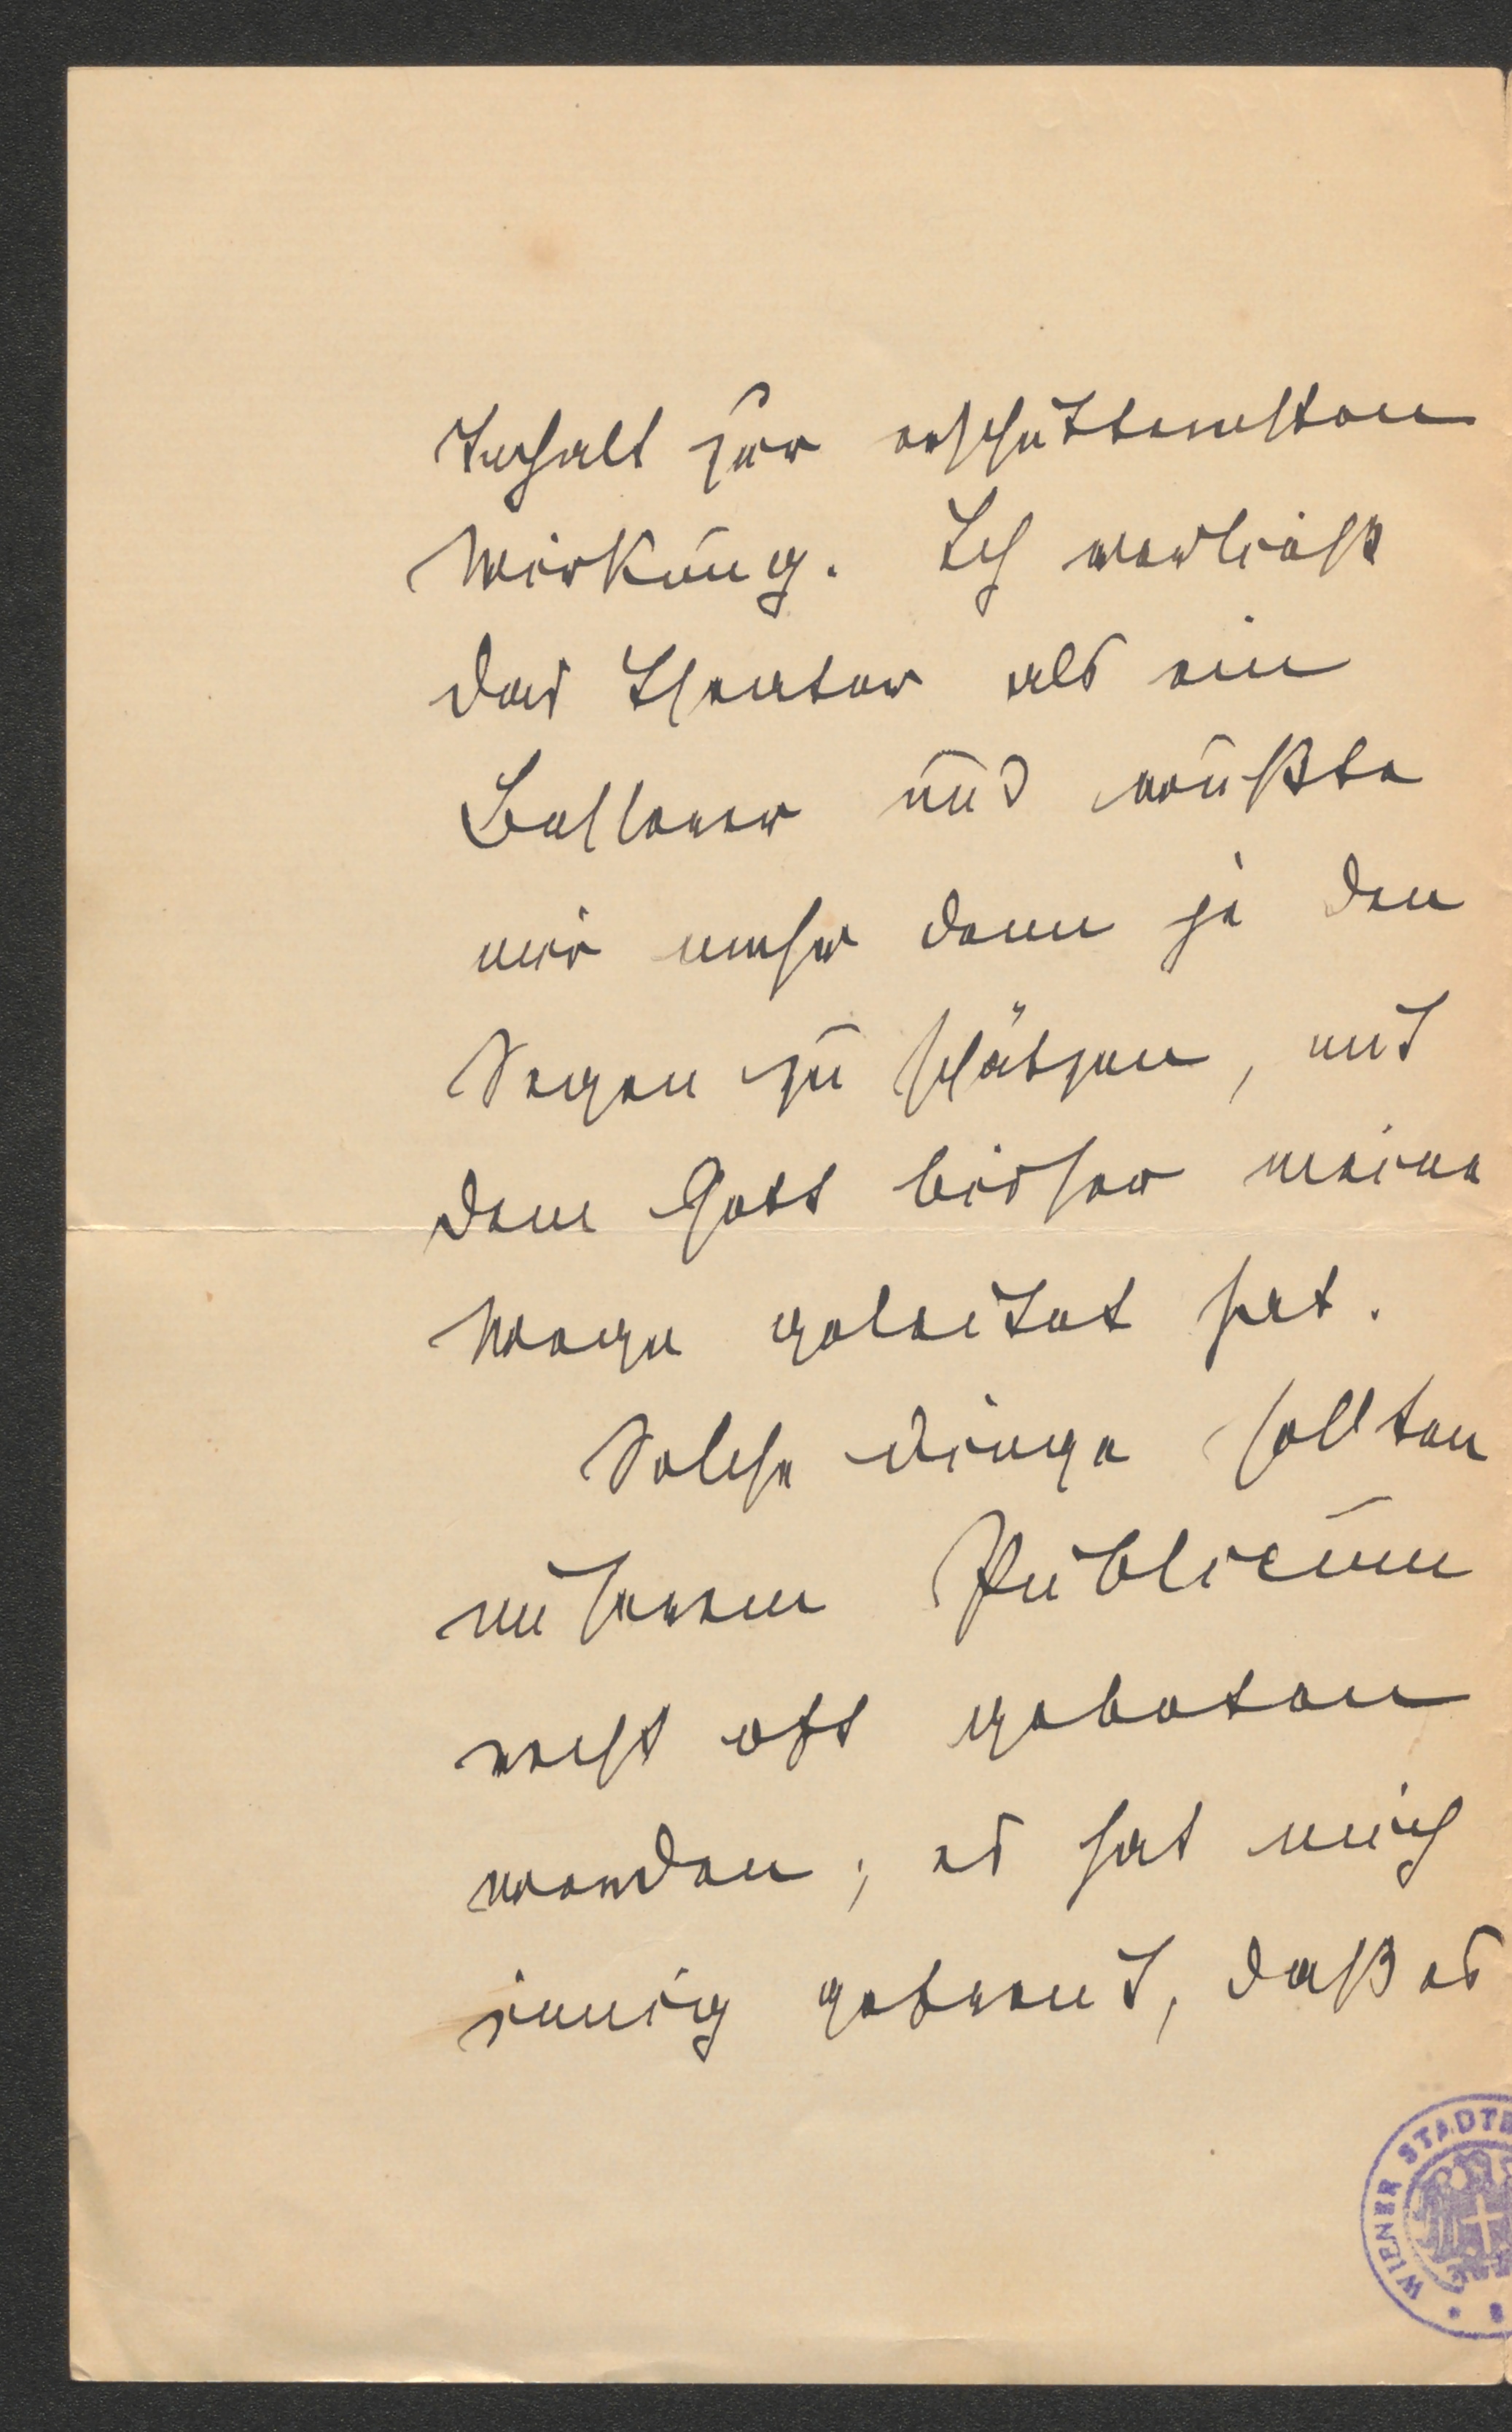 Inhalt zur erschütterndsten
Wirkung. Ich verließ
das Theater als ein
Besserer und wußte
mir mehr denn je den
Segen zu schätzen, mit
dem Gott bisher meine
Wege geleitet hat.
Solche Dinge sollten
unserem Publicum
recht oft geboten
werden; es hat mich
innig gefreut, daß es
WIENER STADTB